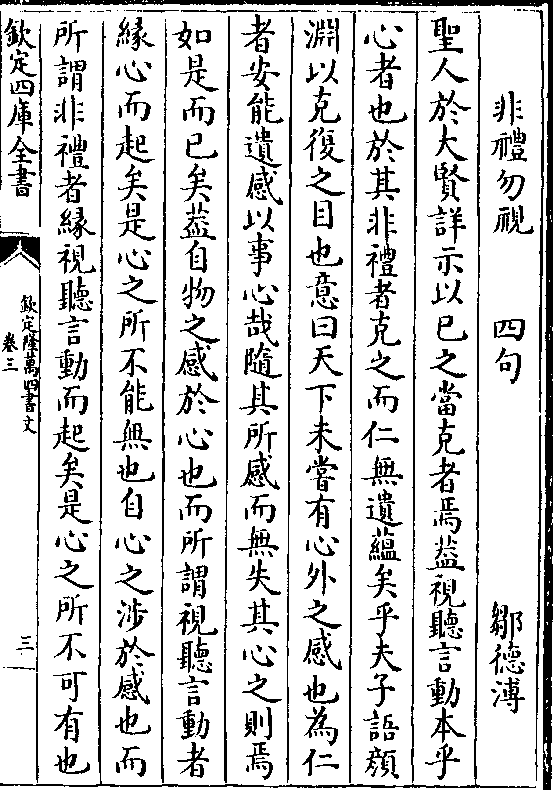 非禮勿視　四句　鄒德溥
聖人於大賢詳示以已之當克者焉葢視聽言動本乎
心者也於其非禮者克之而仁無遺蘊矣乎夫子語顔
淵以克復之目也意曰天下未嘗有心外之感也為仁
者安能遺感以事心哉隨其所感而無失其心之則焉
如是而已矣葢自物之感於心也而所謂視聽言動者
緣心而起矣是心之所不能無也自心之涉於感也而
所謂非禮者緣視聽言動而起矣是心之所不可有也
欽定四庫全書
欽定隆萬四書文
卷三
三